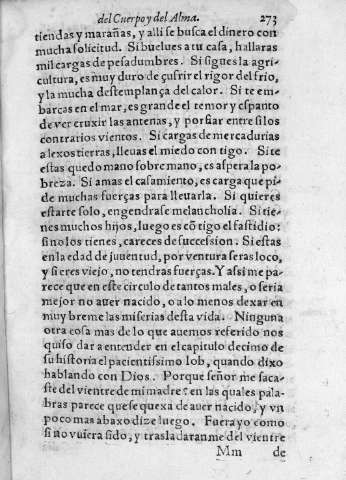 del Cuerpo y del Alma. 273
tiendas y marañas, y alli se busca el dinero con
mucha solicitud. Si buelues a tu casa, hallaras
mil cargas de pesadumbres. Si sigues la agri-
cultura, es muy duro de çufrir el rigor del frio,
y la mucha destemplança del calor. Si te em-
barcas en el mar, es grande el temor y espanto
de ver cruxir las antenas, y porfiar entre si los
contrarios vientos. Si cargas de mercadurias
a lexos tierras, lleuas el miedo con tigo. Si te
estas quedo mano sobre mano, es aspera la po-
breza. Si amas el casamiento, es carga que pi-
de muchas fuerças para lleuarla. Si quieres
estarte solo, engendrase melancholia. Si tie-
nes muchos hijos, luego es cõ tigo el fastidio:
si no los tienes, careces de succession. Si estas
en la edad de juuentud, por ventura seras loco,
y si eres viejo, no tendras fuerças. Y assi me pa-
rece que en este circulo de tantos males, o seria
mejor no auer nacido, o alo menos dexar en
muy breme las miserias desta vida. Ninguna
otra cosa mas de lo que auemos referido nos
quiso dar a entender en el capitulo decimo de
su historia el pacientissimo Iob, quando dixo
hablando con Dios. Porque señor me saca-
ste del vientre de mi madre? en las quales pala-
bras parece que se quexa de auer nacido, y vn
poco mas abaxo dize luego. Fuera yo como
si no vuiera sido, y trasladaranme del vientre
Mm de